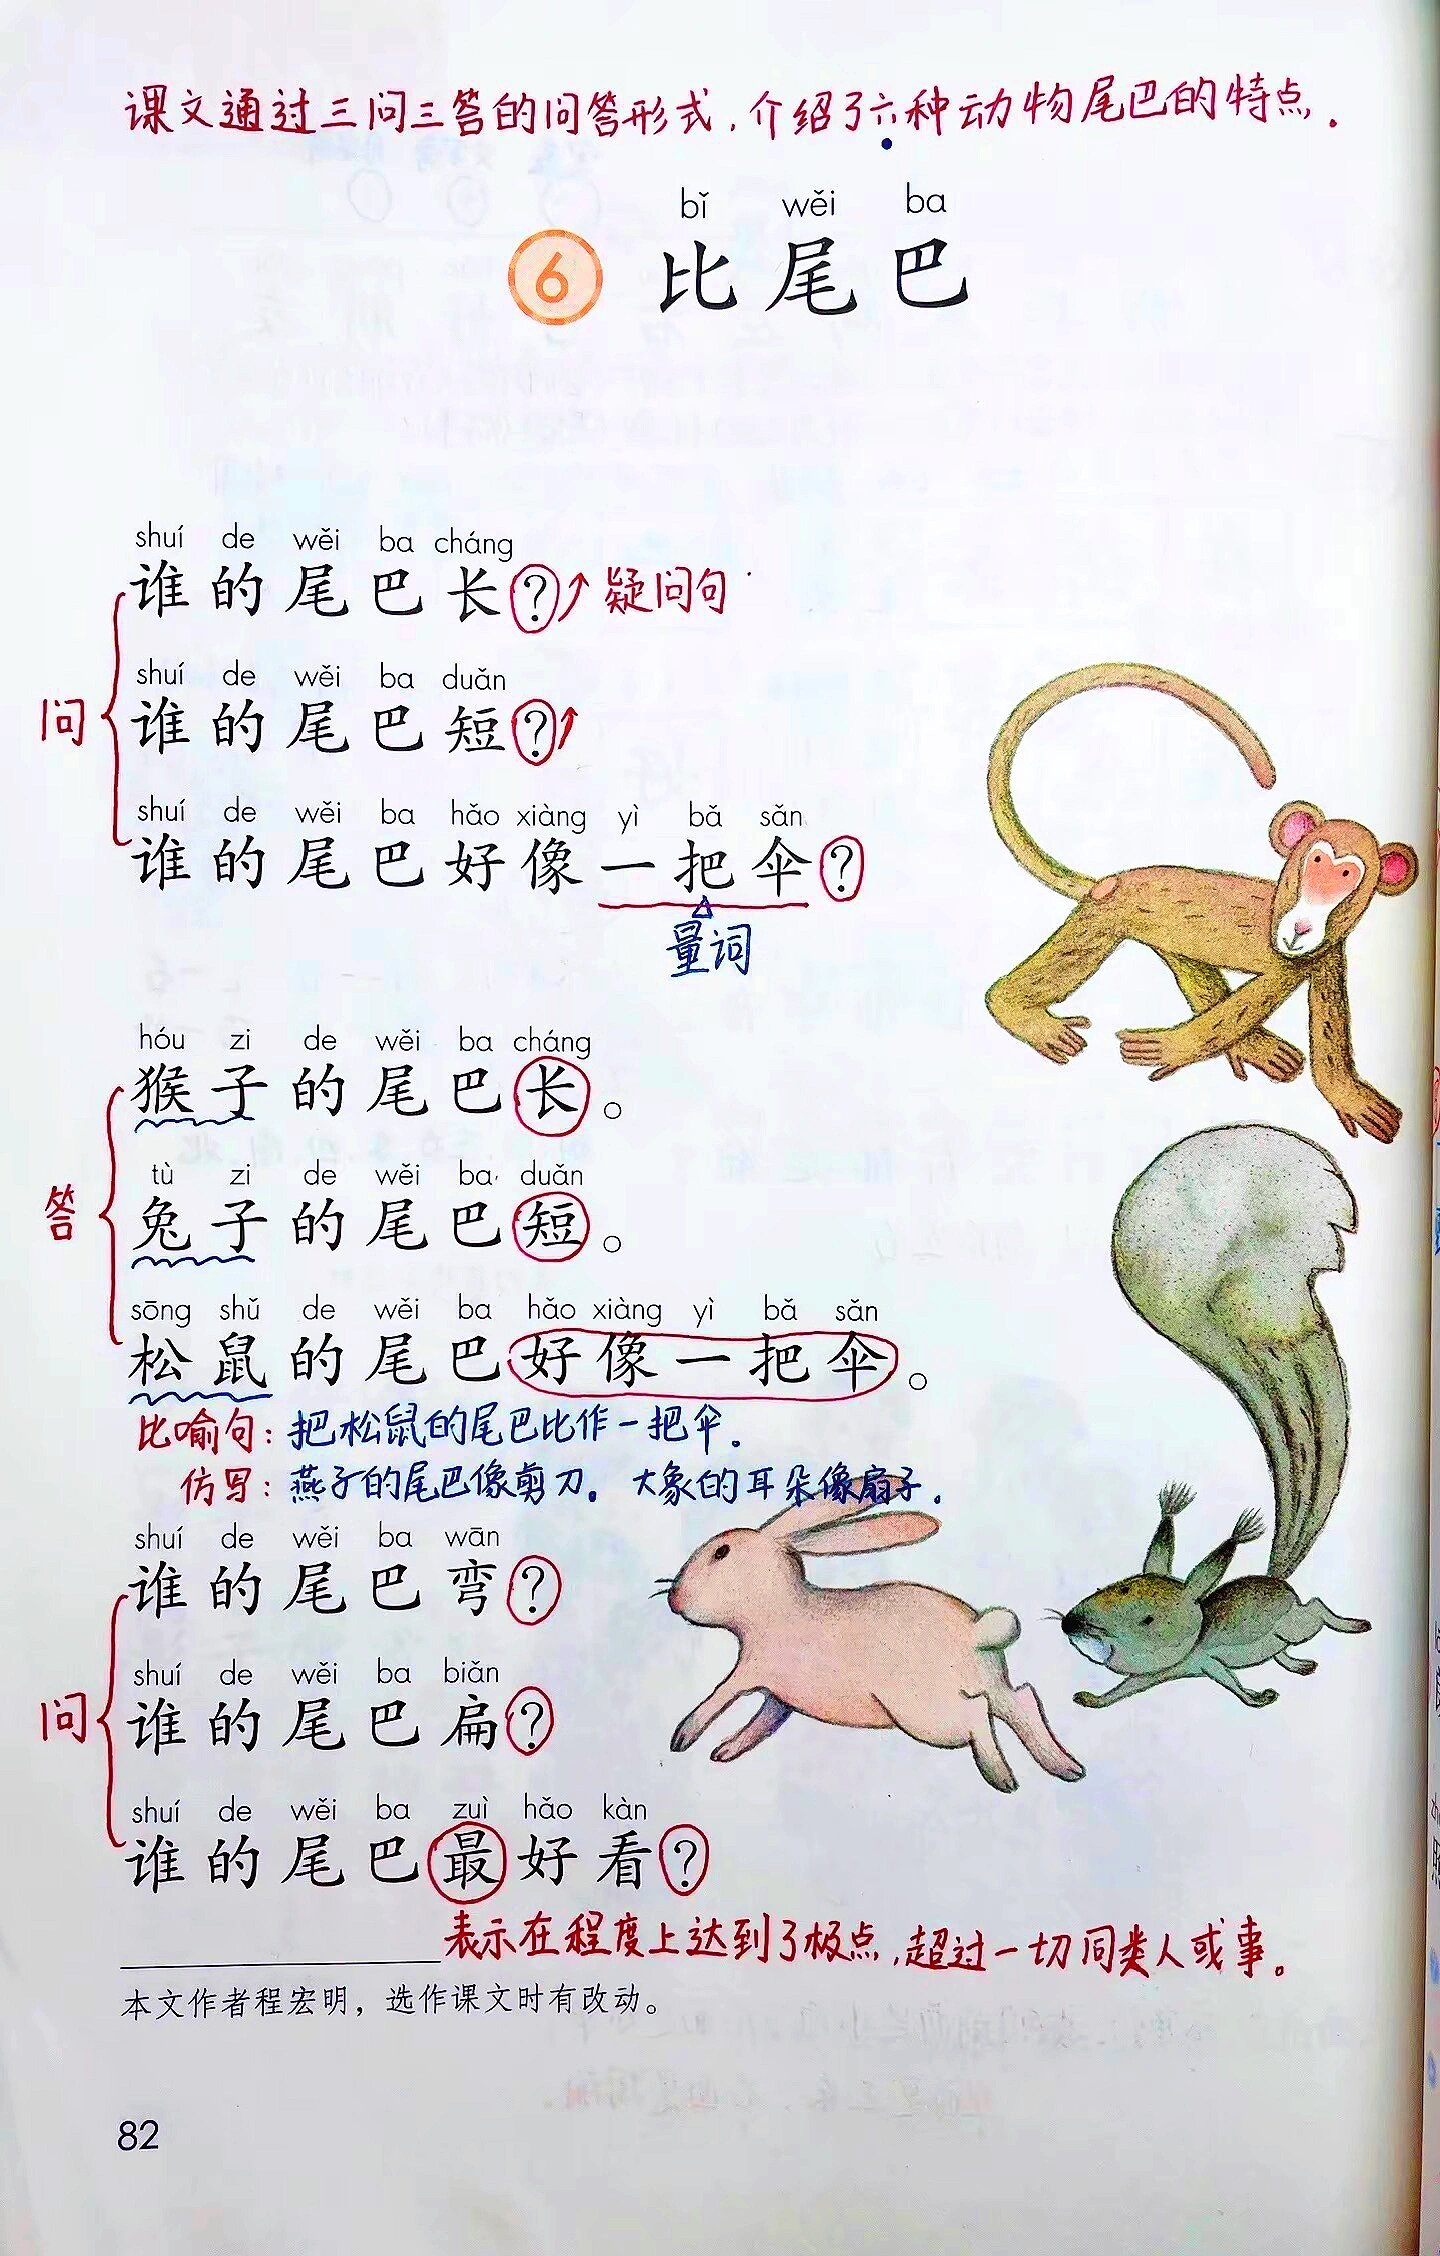 课文通过三问三答的问答形式，介绍了六种动物尾巴的特点.
bǐ wěi ba
6 比尾巴
shuí de wěi ba cháng
谁的尾巴长？疑问句
shuí de wěi ba duǎn
谁的尾巴短？
shuí de wěi ba hǎo xiàng yì bǎ sǎn
谁的尾巴好像一把伞？
问
量词
hóu zi de wěi ba cháng
猴子的尾巴长。
tù zi de wěi ba duǎn
兔子的尾巴短。
答
sōng shǔ de wěi ba hǎo xiàng yì bǎ sǎn
松鼠的尾巴好像一把伞。
比喻句：把松鼠的尾巴比作一把伞.
仿写：燕子的尾巴像剪刀。大象的耳朵像扇子.
shuí de wěi ba wān
谁的尾巴弯？
shuí de wěi ba biǎn
谁的尾巴扁？
问
shuí de wěi ba zuì hǎo kàn
谁的尾巴最好看？
表示在程度上达到了极点,超过一切同类人或事。
本文作者程宏明，选作课文时有改动。
82